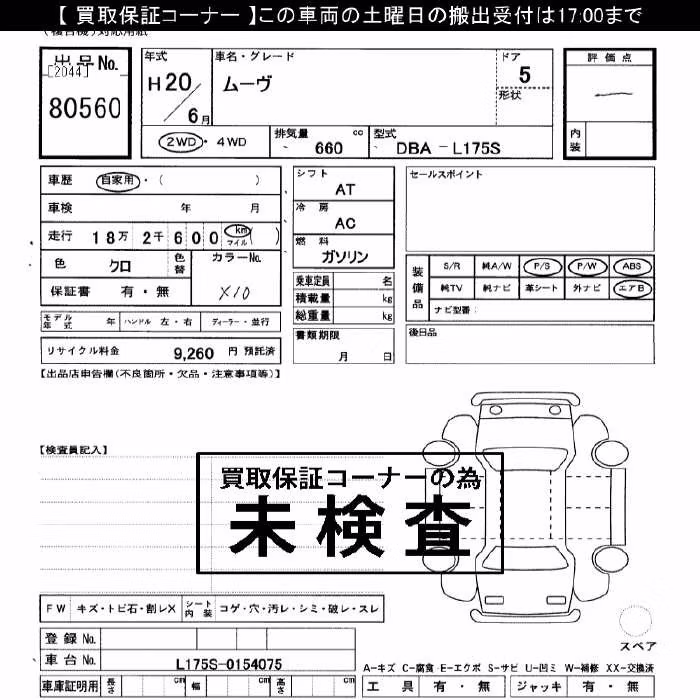 【 買取保証コーナー 】この車両の土曜日の搬出受付は17:00まで
(複合機)対応用紙
出品No.
[2044]
80560
年式
H20/6月
車名・グレード
ムーヴ
ドア
5
形状
評価点
内装
2WD・4WD
排気量 cc
660
型式
DBA-L175S
車歴 自家用・( )
車検 年 月
走行 18万 2千600 km マイル ( )
色 クロ
色替
カラーNo.
X10
保証書 有・無
モデル年式 年 ハンドル 左・右 ディーラー・並行
リサイクル料金 9,260 円 預託済
シフト
AT
冷房
AC
燃料
ガソリン
乗車定員 名
積載量 kg
総重量 kg
書類期限
月 日
セールスポイント
装備品
S/R 純A/W P/S P/W ABS
純TV 純ナビ 革シート 外ナビ エアB
ナビ型番:
後日品
【出品店申告欄(不良箇所・欠品・注意事項等)】
【検査員記入】
買取保証コーナーの為
未検査
FW キズ・トビ石・割レX シート内装 コゲ・穴・汚レ・シミ・破レ・スレ
登録No.
車台No. L175S-0154075
車庫証明用 長さ cm 幅 cm 高さ cm
スペア
A-キズ C-腐食 E-エクボ S-サビ U-凹ミ W-補修 XX-交換済
工具 有・無 ジャッキ 有・無